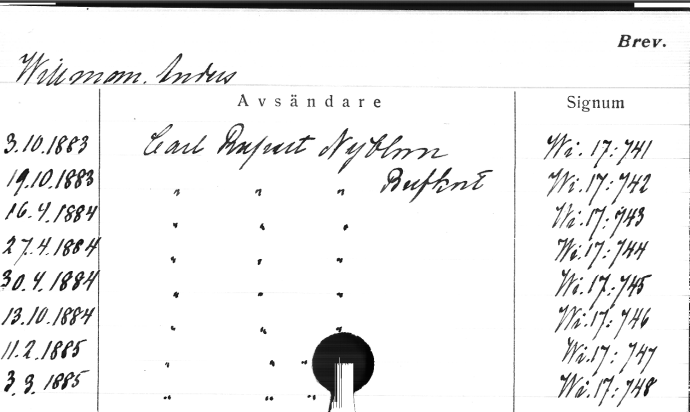 Brev.
Willman. Anders
Avsändare Signum
3.10.1883 Carl Rupert Nyblom Wi.17:741
19.10.1883 " " " Brefkort Wi.17:742
16.4.1884 " " " Wi.17:743
27.4.1884 " " " Wi.17:744
30.4.1884 " " " Wi.17:745
13.10.1884 " " " Wi.17:746
11.2.1885 " " " Wi.17:747
3.3.1885 " " " Wi.17:748